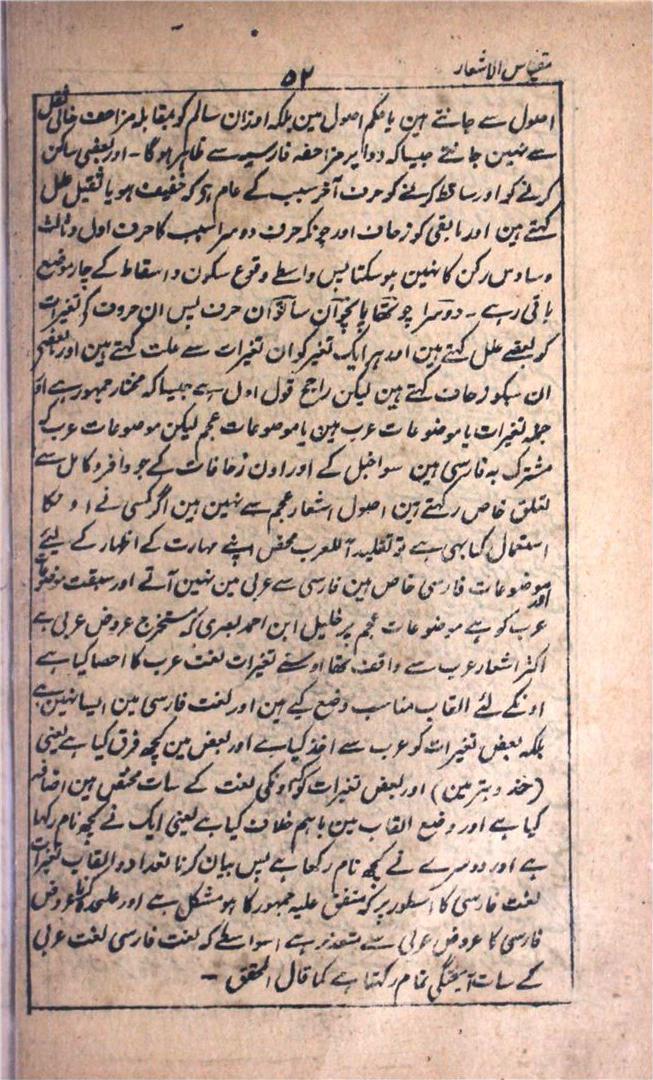 مقیاس الاشعار
۵۲
اصول سے جانتے ہین یا حکم اصول مین بلکہ اوزان سالم کو بمقابلہ مزاحف خالی
سے نہین جانتے جیسا کہ دوایر مزاحفہ فارسیہ سے ظاہر ہوگا ۔ اور بعضی ساکن
کرنے کو اور ساقط کرنے کو حرف آخر سبب کے عام ہو کہ خفیف ہو یا ثقیل علل
کہتے ہین اور مابقی کو زحاف اور چونکہ حرف دوسرا سبب کا حرف اول و ثالث
و سادس رکن کا نہین ہوسکتا پس واسطے وقوع سکون و اسقاط کے چار موضع
باقی رہے ۔ دوسرا چوتھا پانچوآن ساتوآن حرف پس ان حروف کی تغیرات
کو بعضے علل کہتے ہین اور ہر ایک تغیر کو ان تغیرات سے علت کہتے ہین اور بعضی
ان سبکو زحاف کہتے ہین لیکن راجح قول اول ہے جیسا کہ مختار جمہور ہے اور
جملہ تغیرات یا موضوعات عرب ہین یا موضوعات عجم لیکن موضوعات عرب کے
مشترک بہ فارسی ہین سوا خبل کے اور اون زحافات کے جو وافر و کامل سے
تعلق خاص رکہتے ہین اصول اشعار عجم سے نہین ہین اگر کسی نے اونکا
استعمال کیا بہی ہے تو تقلیداً للعرب محض اپنے مہارت کے اظہار کے لیئے
اور موضوعات فارسی خاص ہین فارسی سے عربی مین نہین آتے اور سبقت موضوعات
عرب کو ہے موضوعات عجم پر خلیل ابن احمد بصری کہ مستخرج عروض عربی ہے
اکثر اشعار عرب سے واقف تھا اوسنے تغیرات لغت عرب کا احصا کیا ہے
اونکے لئے القاب مناسب وضع کیے ہین اور لغت فارسی مین ایسا نہین ہے
بلکہ بعض تغیرات کو عرب سے اخذ کیا ہے اور بعض مین کچھ فرق کیا ہے یعنی
(حذذ و بتر مین) اور بعض تغیرات کو کہ اونکی لغت کے سات مختص ہین اضافہ
کیا ہے اور وضع القاب مین باہم خلاف کیا ہے یعنی ایک نے کچھ نام رکہا
ہے اور دوسرے نے کچھ نام رکھا ہے پس بیان کرنا تعداد و القاب تغیرات
لغت فارسی کا اسطور پر کہ متفق علیہ جمہور کا ہو مشکل ہے اور علیحدہ کرنا عروض
فارسی کا عروض عربی سے متعذر ہے اسواسطے کہ لغت فارسی لغت عربی
کے سات آمیختگی تمام رکہتا ہے کما قال المحقق ۔